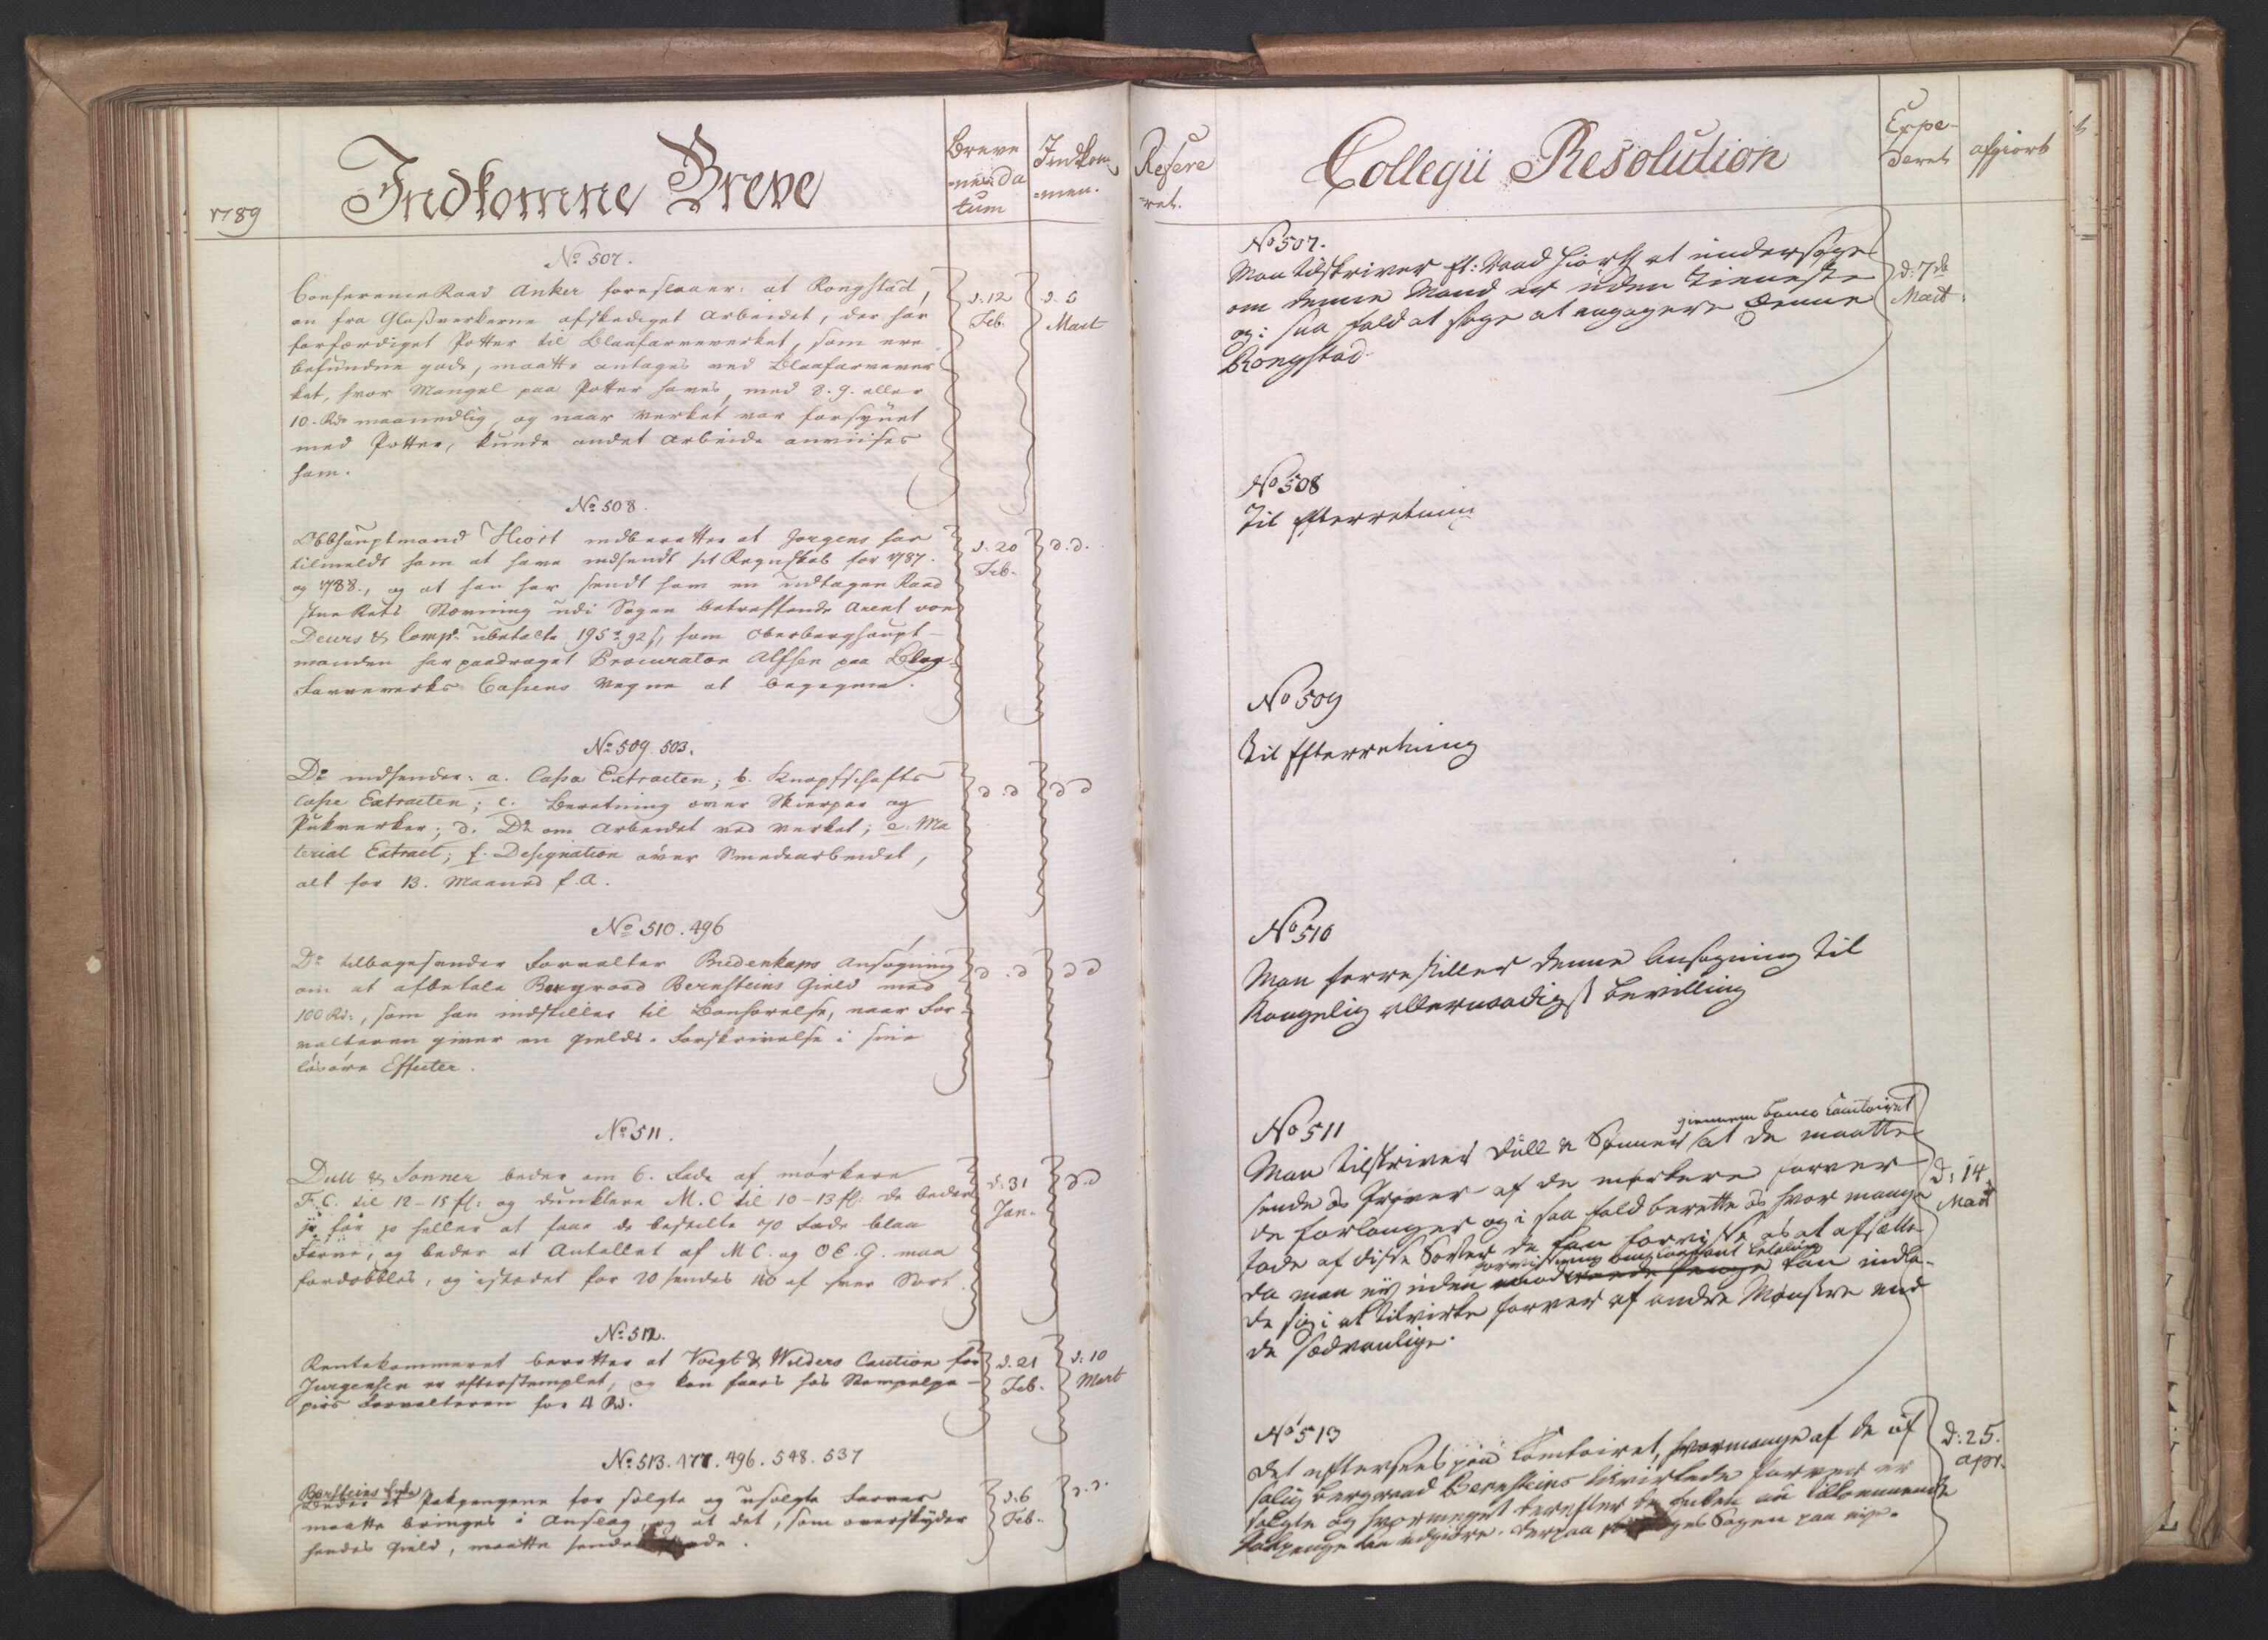 1789
Indkomne Breve
Breve
-nes Da
tum
Indkom
-men.
No 507.
Conference Raad Anker foreslaaer: at Rongstad,
en fra Glasverkerne afskediget Arbeider, der har
forfærdiget Potter til Blaafarveverket, som ere
befundne gode, maatte antages ved Blaafarvever
ket, hvor Mangel paa Potter haves, med 8. 9. eller
10. Rdr maanedlig, og naar Verket var forsynet
med Potter, kunde andet Arbeide anviises
ham.
d. 12
Feb.
d. 5
Mart
No 508.
Obbhauptmand Hiort indberetter at Jorgens har
tilmeldt ham at have indsendt sit Regnskab for 1787.
og 1788., og at han har sendt ham en udtagen Raad
stue Rets Stævning udi Sagen betreffende Arent von
Deurs & Comp. ubetalte 195 r 92 s, som Oberberghaupt-
manden har paadraget Procurator Alfsen paa Blaa-
Farveverks Cassens Vegne at begegne.
d. 20
Feb.
d. d.
No 509. 503.
Do indsender: a. Cassa Extracten; b. Knapfschafts
Casse Extracten; c. Beretning over Skierper og
Pukverker; d. Do om Arbeidet ved Verket; e. Ma
terial Extract; f. Designation over Smedearbeidet,
alt for 13. Maaned f. A.
d. d
d d
No 510. 496
Do tilbagesender Forvalter Bredenkaps Ansøgning
om at afbetale Bergraad Bernsteins Gield med
100 Rd., som han indstiller til Bønhørelse, naar For-
valteren giver en Gields-Forskrivelse i sine
løsøre Effecter.
d. d
d d
No 511.
Dull & Sonner beder om 6. Fade af mørkere
F. C. til 12 - 15 fl: og dunklere M. C til 10 - 13 fl: de beder
jo før jo heller at faae de bestilte 70 Fade blaa
Farve, og beder at Antallet af M C. og O E. G. maa
fordobbles, og istedet for 20 sendes 40 af hver Sort.
d. 31
Jan.
d. d
No 512.
Rentekammeret beretter at Voigt & Wilders Caution for
Jurgensen er efterstemplet, og kan faaes hos Stempelpa-
piirs Forvalteren for 4 Rd.
d. 21
Feb.
d. 10
Mart
No 513. 477. 496. 548. 537
Bernsteins Enke
beder at Pakpengene for solgte og usolgte Farver
maatte bringes i Anslag, og at det, som overskyder
hendes Gield, maatte sendes
d. 6
Feb.
d. d.
Refere
-ret.
Collegii Resolution
Expe-
deret
afgiort
No 507.
Man tilskriver Et: Raad Hiorth at undersøge
om denne Mand er uden Tieneste
og i saa fald at søge at engagere denne
Rongstad
d. 7de
Mart.
No 508
Til Efterretning
No 509
Til Efterretning
No 510
Man forrestiller denne Ansøgning til
Kongelig allernaadigst Bevilling
No 511
giennem Banco Comtoiret
Man tilskriver Düll & Sønner at de maatte
sende os Prøver af de mørkere Farver
de forlanger og i saa fald berette os hvor mange
fade af disse Sorter de kan forvisse os at afsætte
forvisning om Contant betaling
da man ey uden kan indla-
de sig i at tilvirke farver af andre Mønstre end
de sædvanlige.
d: 14
Mart
No 513
Det eftersees paa Comtoiret, hvormange af de af
salig Bergraad Bernsteins tilvirkede farver er
solgte og hvormeget derefter de Enken
Pakpenge kan udgiøre. Derpaa Sagen paa nye.
d. 25.
apr.